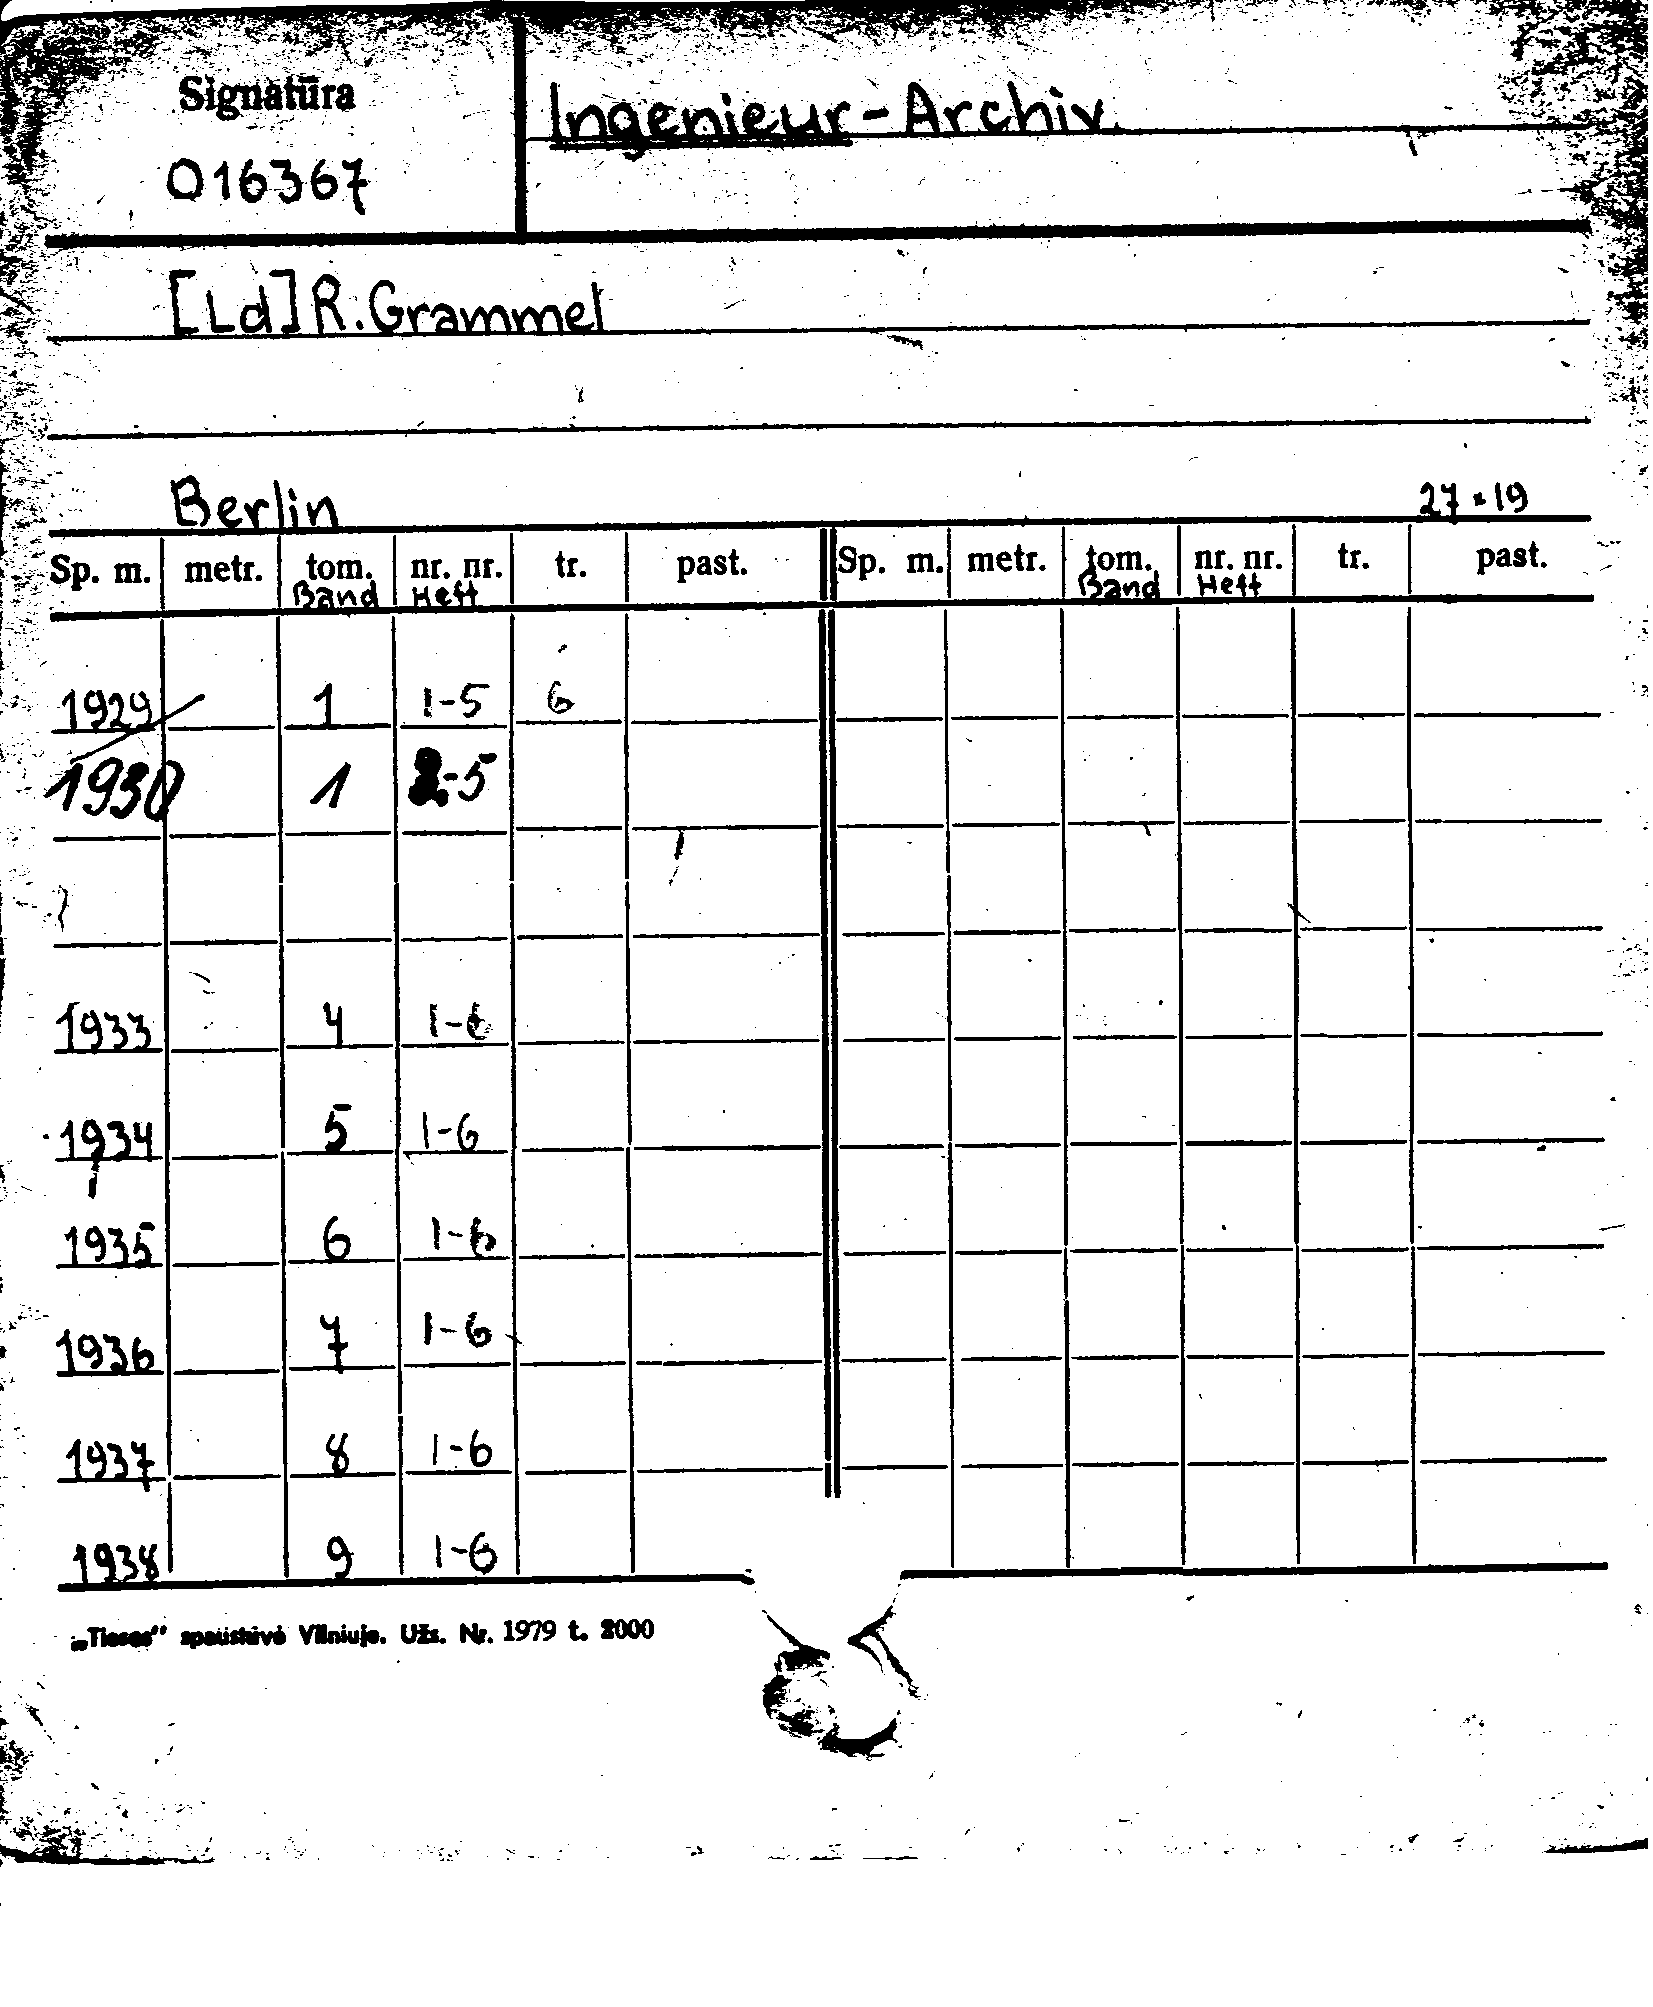 Signatūra
Ingenieur-Archiv.
016367
[Ld] R. Grammel
Berlin 27×19
Sp. m. metr. tom. nr. nr. tr. past. Sp. m. metr. tom. nr. nr. tr. past.
Band Heft Band Heft
1929 1 1-5 6
1930 1 2-5
1933 4 1-6
1934 5 1-6
1935 6 1-6
1936 7 1-6
1937 8 1-6
1938 9 1-6
„Tiesos” spaustuvė Vilniuje. Užs. Nr. 1979 t. 2000